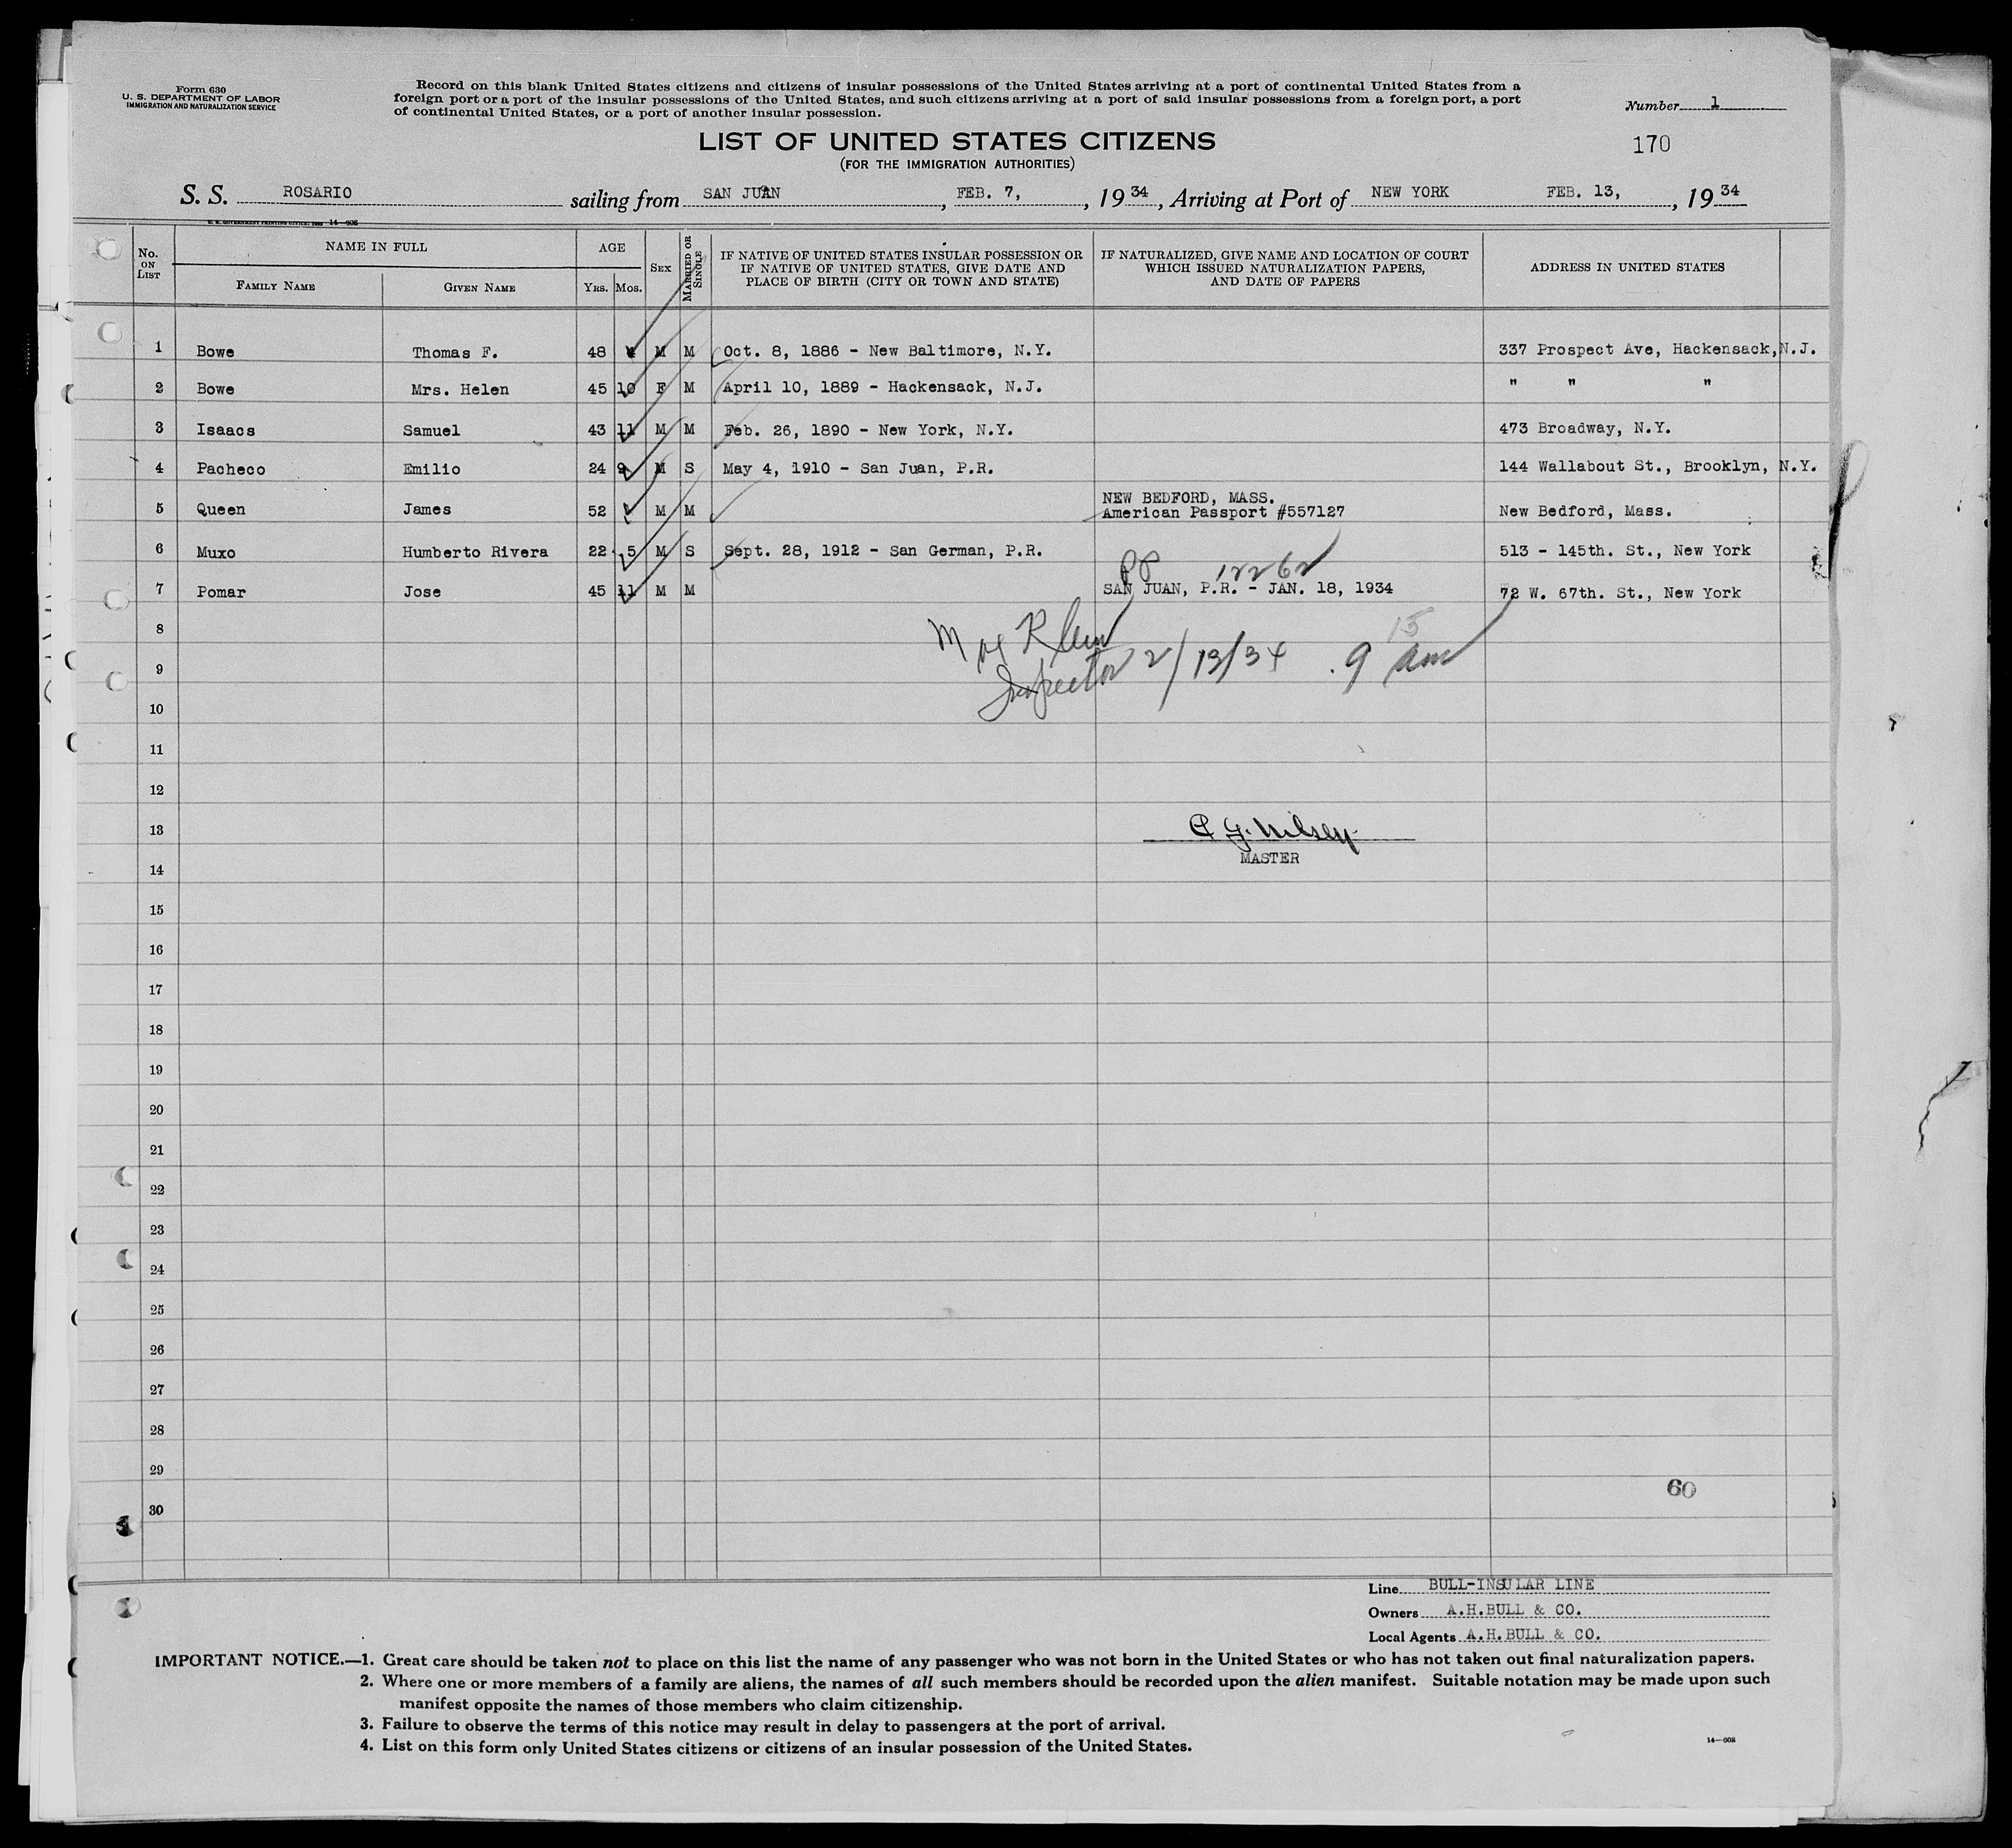 Form 630
U. S. DEPARTMENT OF LABOR
IMMIGRATION AND NATURALIZATION SERVICE
Record on this blank United States citizens and citizens of insular possessions of the United States arriving at a port of continental United States from a
foreign port or a port of the insular possessions of the United States, and such citizens arriving at a port of said insular possessions from a foreign port, a port
of continental United States, or a port of another insular possession.
Number 1
LIST OF UNITED STATES CITIZENS
170
(FOR THE IMMIGRATION AUTHORITIES)
S. S. ROSARIO sailing from SAN JUAN, FEB. 7, , 19 34, Arriving at Port of NEW YORK FEB. 13, , 19 34
14-608
No. ON LIST
NAME IN FULL
FAMILY NAME
GIVEN NAME
AGE
YRS. MOS.
SEX
MARRIED OR SINGLE
IF NATIVE OF UNITED STATES INSULAR POSSESSION OR
IF NATIVE OF UNITED STATES, GIVE DATE AND
PLACE OF BIRTH (CITY OR TOWN AND STATE)
IF NATURALIZED, GIVE NAME AND LOCATION OF COURT
WHICH ISSUED NATURALIZATION PAPERS,
AND DATE OF PAPERS
ADDRESS IN UNITED STATES
1 Bowe Thomas F. 48 4 M M Oct. 8, 1886 - New Baltimore, N.Y. 337 Prospect Ave, Hackensack, N.J.
2 Bowe Mrs. Helen 45 10 F M April 10, 1889 - Hackensack, N.J. " " "
3 Isaacs Samuel 43 11 M M Feb. 26, 1890 - New York, N.Y. 473 Broadway, N.Y.
4 Pacheco Emilio 24 9 M S May 4, 1910 - San Juan, P.R. 144 Wallabout St., Brooklyn, N.Y.
NEW BEDFORD, MASS.
5 Queen James 52 M M American Passport #557127 New Bedford, Mass.
6 Muxo Humberto Rivera 22 5 M S Sept. 28, 1912 - San German, P.R. 513 - 145th. St., New York
PP 12262
7 Pomar Jose 45 11 M M SAN JUAN, P.R. - JAN. 18, 1934 72 W. 67th. St., New York
8
Klein
9
Inspector 2/13/34 9 15 am
10
11
12
13
14
MASTER
15
16
17
18
19
20
21
22
23
24
25
26
27
28
29
60
30
Line BULL-INSULAR LINE
Owners A.H.BULL & CO.
Local Agents A.H.BULL & CO.
IMPORTANT NOTICE.—1. Great care should be taken not to place on this list the name of any passenger who was not born in the United States or who has not taken out final naturalization papers.
2. Where one or more members of a family are aliens, the names of all such members should be recorded upon the alien manifest. Suitable notation may be made upon such
manifest opposite the names of those members who claim citizenship.
3. Failure to observe the terms of this notice may result in delay to passengers at the port of arrival.
4. List on this form only United States citizens or citizens of an insular possession of the United States.
14—608